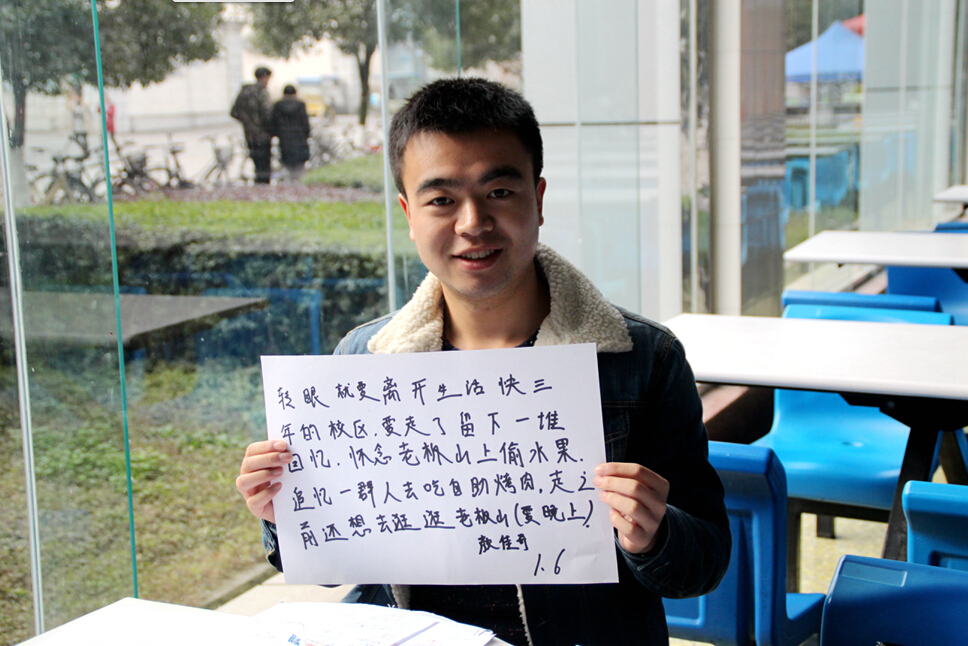 转眼就要离开生活快三
年的校区，要走了留下一堆
回忆，怀念老板山上偷水果，
追忆一群人去吃自助烤肉，走之
前还想去逛逛老板山（要晚上）
佳奇
1.6